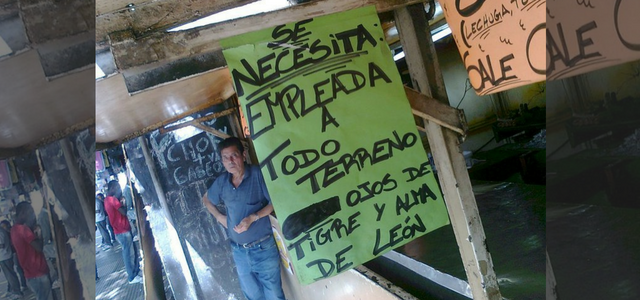 SE
NECESITA
EMPLEADA
A
TODO
TERRENO
OJOS DE
TIGRE Y ALMA
DE LEÓN
(LECHUGA, TO
SALE
ALE